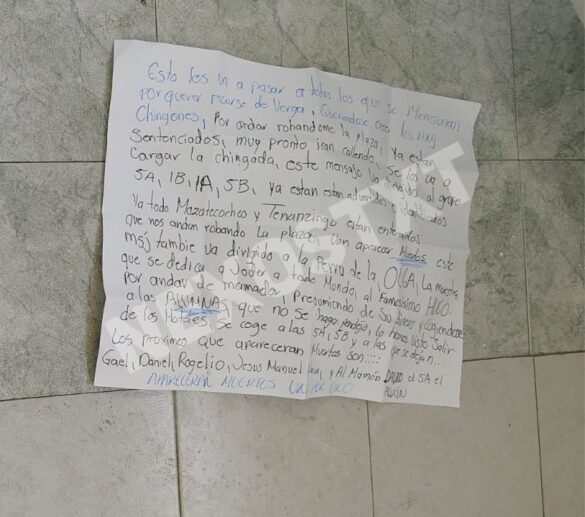 Esto les va a pasar a todos los que se Mencionan
por querer pasarse de Verga, Queriendose creer los muy
Chingones, Por andar robandome la plaza, Ya estan
Sentenciados, muy pronto, iran callendo, Se los va a
Cargar la chingada, este mensaje va dirijido al grupo
5A, 1B, 1A, 5B, Ya estan estan advertidos e identificados
Ya todo Mazatecochco y Tenanzingo estan enterados
que nos andan robando La plaza, Van aparecer Muertos este
msj tambie va dirijido a la Perra de la, OLGA, La maestra,
que se dedica a Joder a todo Mundo, al Famosisimo HUGO
Por andar de mamador, Presumiendo de Su dinero y Cogiendose
a las ALUMNAS, que no Se haga pendejo, lo hemos visto Salir
de los Hoteles, Se coge a las 5A, 5B y a las que se dejan...
Los proximos que apareceran Muertos son:...
Gael, Daniel, Rogelio, Jesus Manuel y Al Mamón DAVID el 5A el
APARECERAN MUERTOS UNO POR UNO
NEKOSTXT